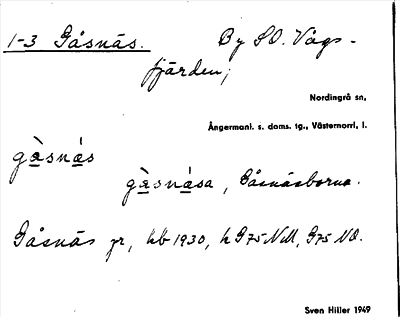 1-3 Gåsnäs. By SO. Vågs-
fjärden;
Nordingrå sn,
Ångermanl. s. doms. tg., Västernorrl, l.
gàsnás
gàsnása, Gåsnäsborna.
Gåsnäs gr, hb 1930, h G75 NV, G75 NO.
Sven Hiller 1949